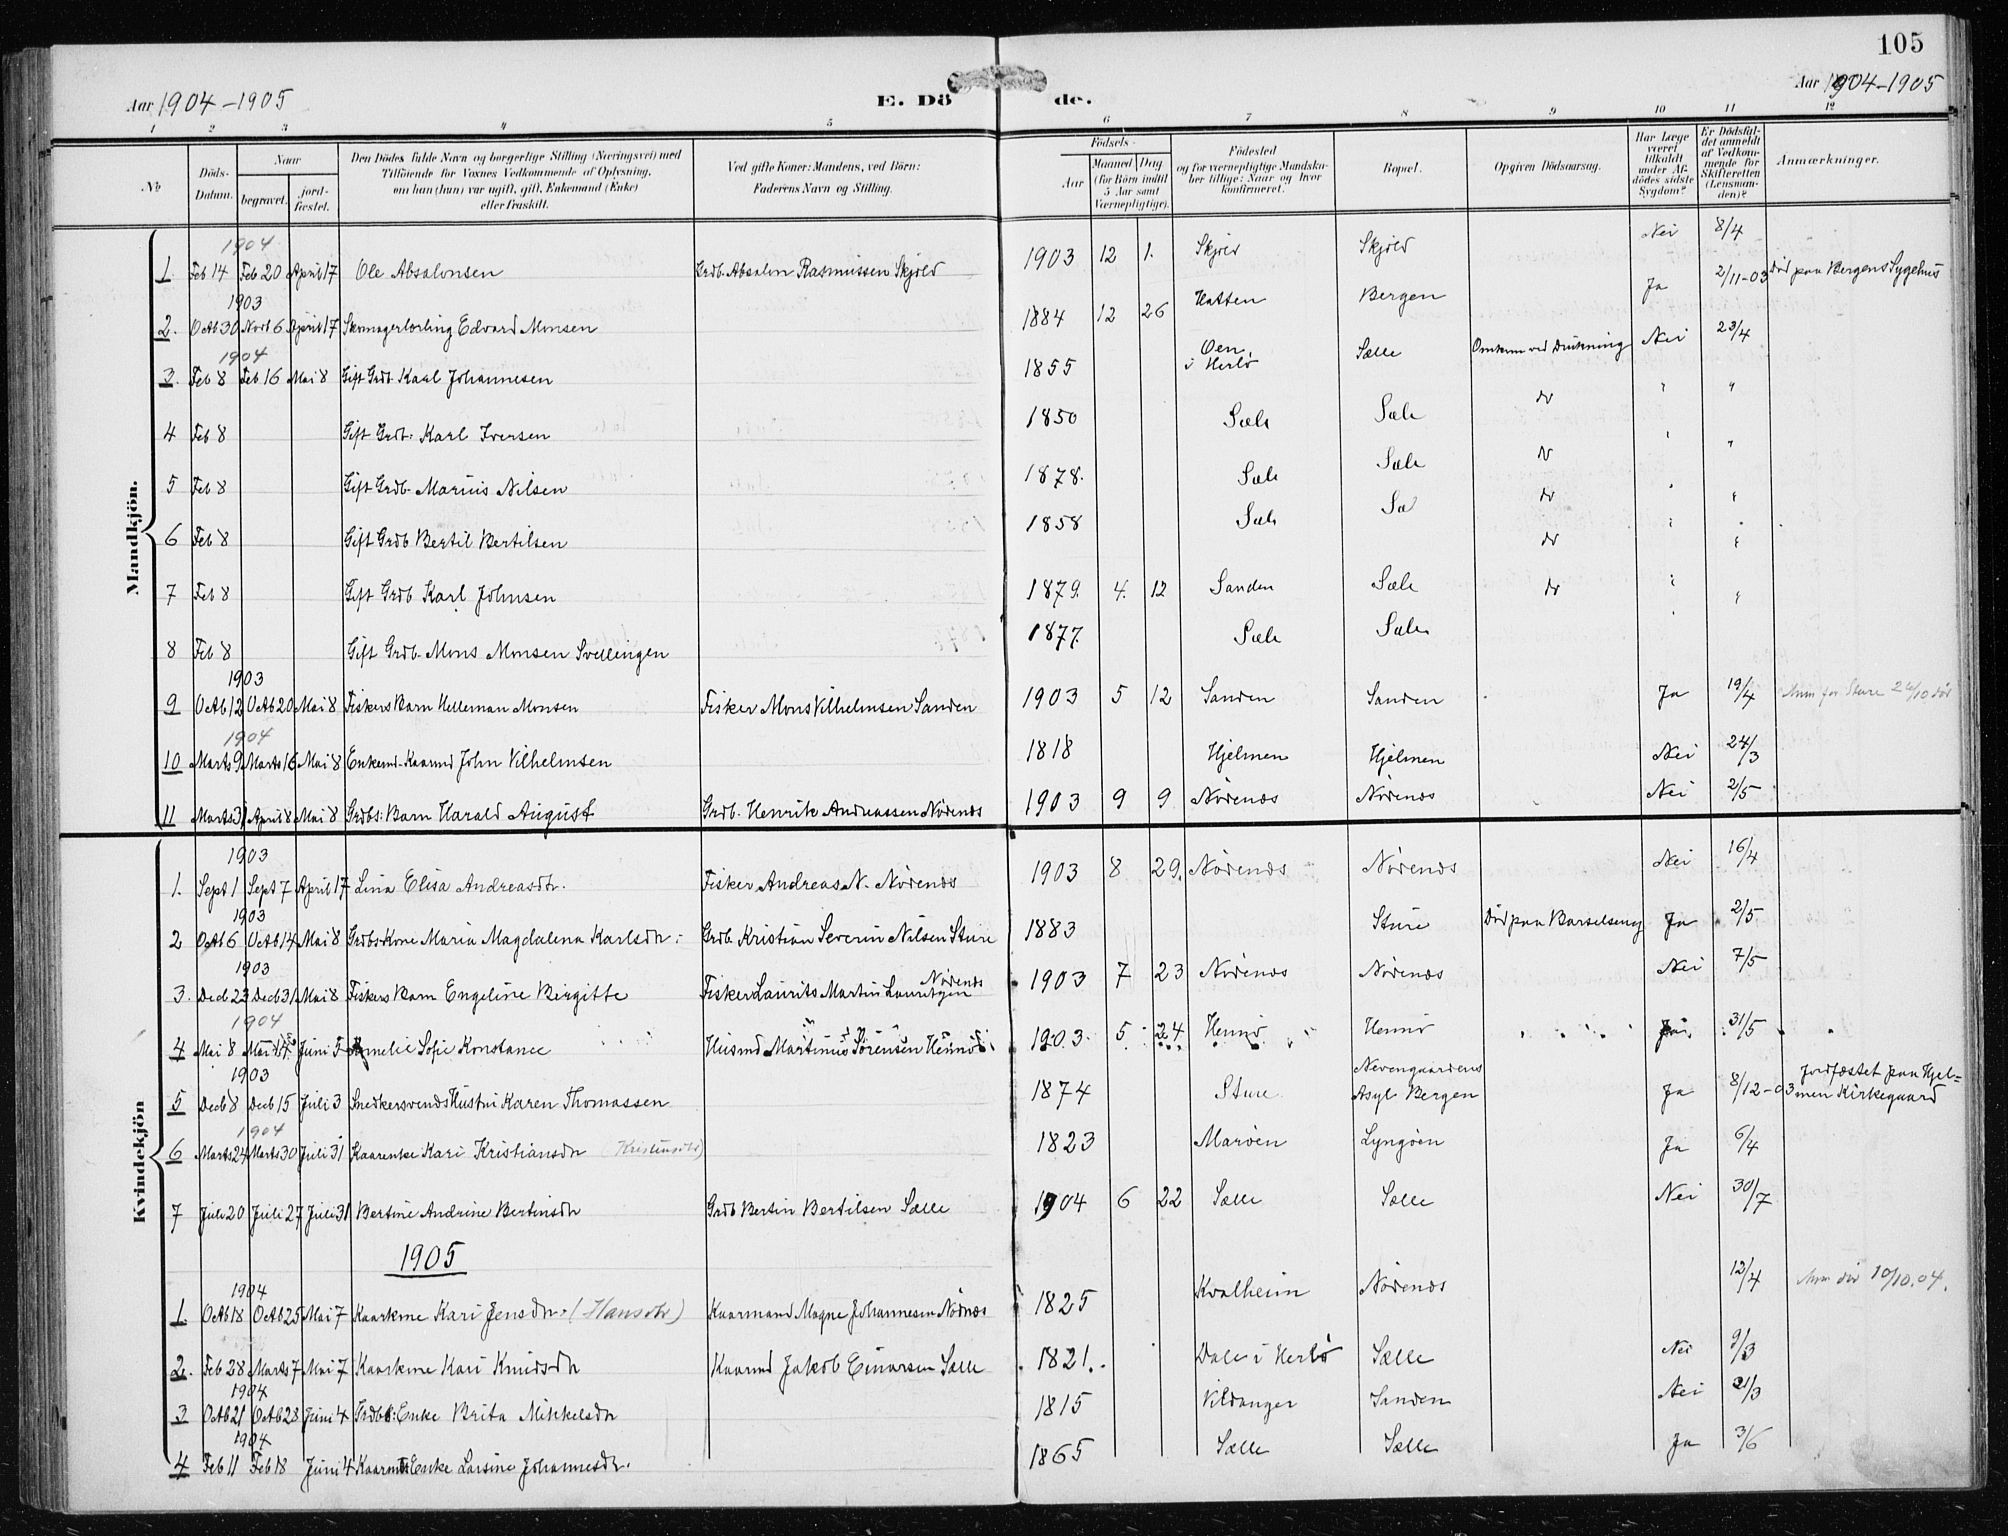 105
Aar 1904-1905
E. Dö de.
Aar 1904-1905
1 2 3 4 5 6 7 8 9 10 11 12
No
Döds-Datum.
Naar
begravet.
jord-fæstet.
Den Dödes fulde Navn og borgerlige Stilling (Næringsvei) med
Tilföiende for Voxnes Vedkommende af Oplysning,
om han (hun) var ugift, gift, Enkemand (Enke)
eller fraskilt.
Ved gifte Koner: Mandens, ved Börn:
Faderens Navn og Stilling.
Födsels-
Aar
Maaned Dag
(for Börn indtil
5 Aar samt
Værnepligtige).
Födested
og for værnepligtige Mandska-
ber tillige: Naar og hvor
konfirmeret.
Bopæl.
Opgiven Dödsaarsag.
Har Læge
været
tilkaldt
under Af-
dödes sidste
Sygdom?
Er Dödsfal-
det anmeldt
af Vedkom-
mende for
Skifteretten
(Lensman-
den)?
Anmærkninger.
Mandkjön.
1904
1. Feb 14 Feb 20 April 17 Ole Absalonsen Grdb. Absalon Rasmussen Skjold 1903 12 1. Skjold Skjold Nei 8/4
1903
2. Octb 30 Novb 6 April 17 Skomagerlærling Edvard Monsen 1884 12 26 Hatten Bergen Ja 2/11-03 Död paa Bergens Sygehus
1904
3. Feb 8 Feb 16 Mai 8 Gift Grdb Karl Johannesen 1855 Oen i Herlö Sælle Omkom ved Drukning Nei 23/4
4 Feb 8 Gift Grdb. Karl Iversen 1850 Sæle Sæle do " "
5 Feb 8 Gift Grdb. Marius Nilsen 1878. Sæle Sæle do " "
6 Feb 8 Gift Grdb Bertil Bertilsen 1858 Sæle Sæ do " "
7 Feb 8 Gift Grdb Karl Johnsen 1879. 4. 12 Sanden Sæle do " "
8 Feb 8 Gift Grdb. Mons Monsen Svellingen 1877. Sæle Sæle do " "
1903
9 Octb 12 Octb 20 Mai 8 Fiskers Barn Helleman Monsen Fisker Mons Vilhelmsen Sanden 1903 5 12 Sanden Sanden Ja 19/4
1904
10 Marts 9 Marts 16 Mai 8 Enkemd. Kaarmd John Vilhelmsen 1818 Hjelmen Hjelmen Nei 24/3
11 Marts 31 April 8 Mai 8 Grdbs: Barn Harald August Grdb. Henrik Andreassen Nörenes 1903 9 9 Nörenes Nörenes Nei 2/5
Kvindekjön
1903
1. Sept 1 Sept 7 April 17 Lina Elisa Andreasdtr. Fisker Andreas N. Nörenes 1903 8 29. Nörenes Nörenes Nei 16/4
1903
2 Octb 6 Octb 14 Mai 8 Grdbs Kone Maria Magdalena Karlsdtr. Grdb Kristian Severin Nilsen Sture 1883 Sture Död paa Barselseng Ja 2/5
1903
3. Decb 23 Decb 31 Mai 8 Fiskers Barn Engeline Birgitte Fisker Laurits Martin Lauritzen Nörenes 1903 7 23 Nörenes Nörenes Nei 7/5
1904
4 Mai 8 Mai 14 Juni 5 Amelie Sofie Konstance Husmd Martinus Sörensen Hennö 1903. 5 24 Hennö Hennö Ja 31/5
1903
5 Decb 8 Decb 15 Juli 3 Snedkersvends Hustru Karen Thomassen 1874 Sture Nevengaardens Asyl Bergen Ja 8/12-03 Jordfæstet paa Hjel=
men Kirkegaard
1904
6 Marts 24 Marts 30 Juli 31 Kaarenke Kari Kristiansdtr 1823 Maröen Lyngöen Ja 6/4
7 Juli 20 Juli 27 Juli 31 Bertine Andrine Bertinsdtr Grdb Bertin Bertilsen Sælle 1904 6 22 Sælle Sælle Nei 30/7
1905
1904
1. Octb 18 Octb 25 Mai 7 Kaarkone Kari Jensdtr. (Hansdtr) Kaarmand Magne Johannesen Nörnes 1825 Kvalheim Nörenes 12/4 10/10.04.
2. Feb 28 Marts 7 Mai 7 Kaarkone Kari Knudsdtr Kaarmd Jakob Einarsen Sælle 1821. Dale i Herlö Sælle Nei 9/3
1904
3 Octb 21 Octb 28 Juni 4 Grdbs: Enke Brita Mikkelsdtr 1815 Vildanger Sanden Nei 21/3
1904
4 Feb 11 Feb 18 Juni 4 Kaarmds Enke Larsine Johannesdtr. 1865 Sælle Sælle Ja 3/6